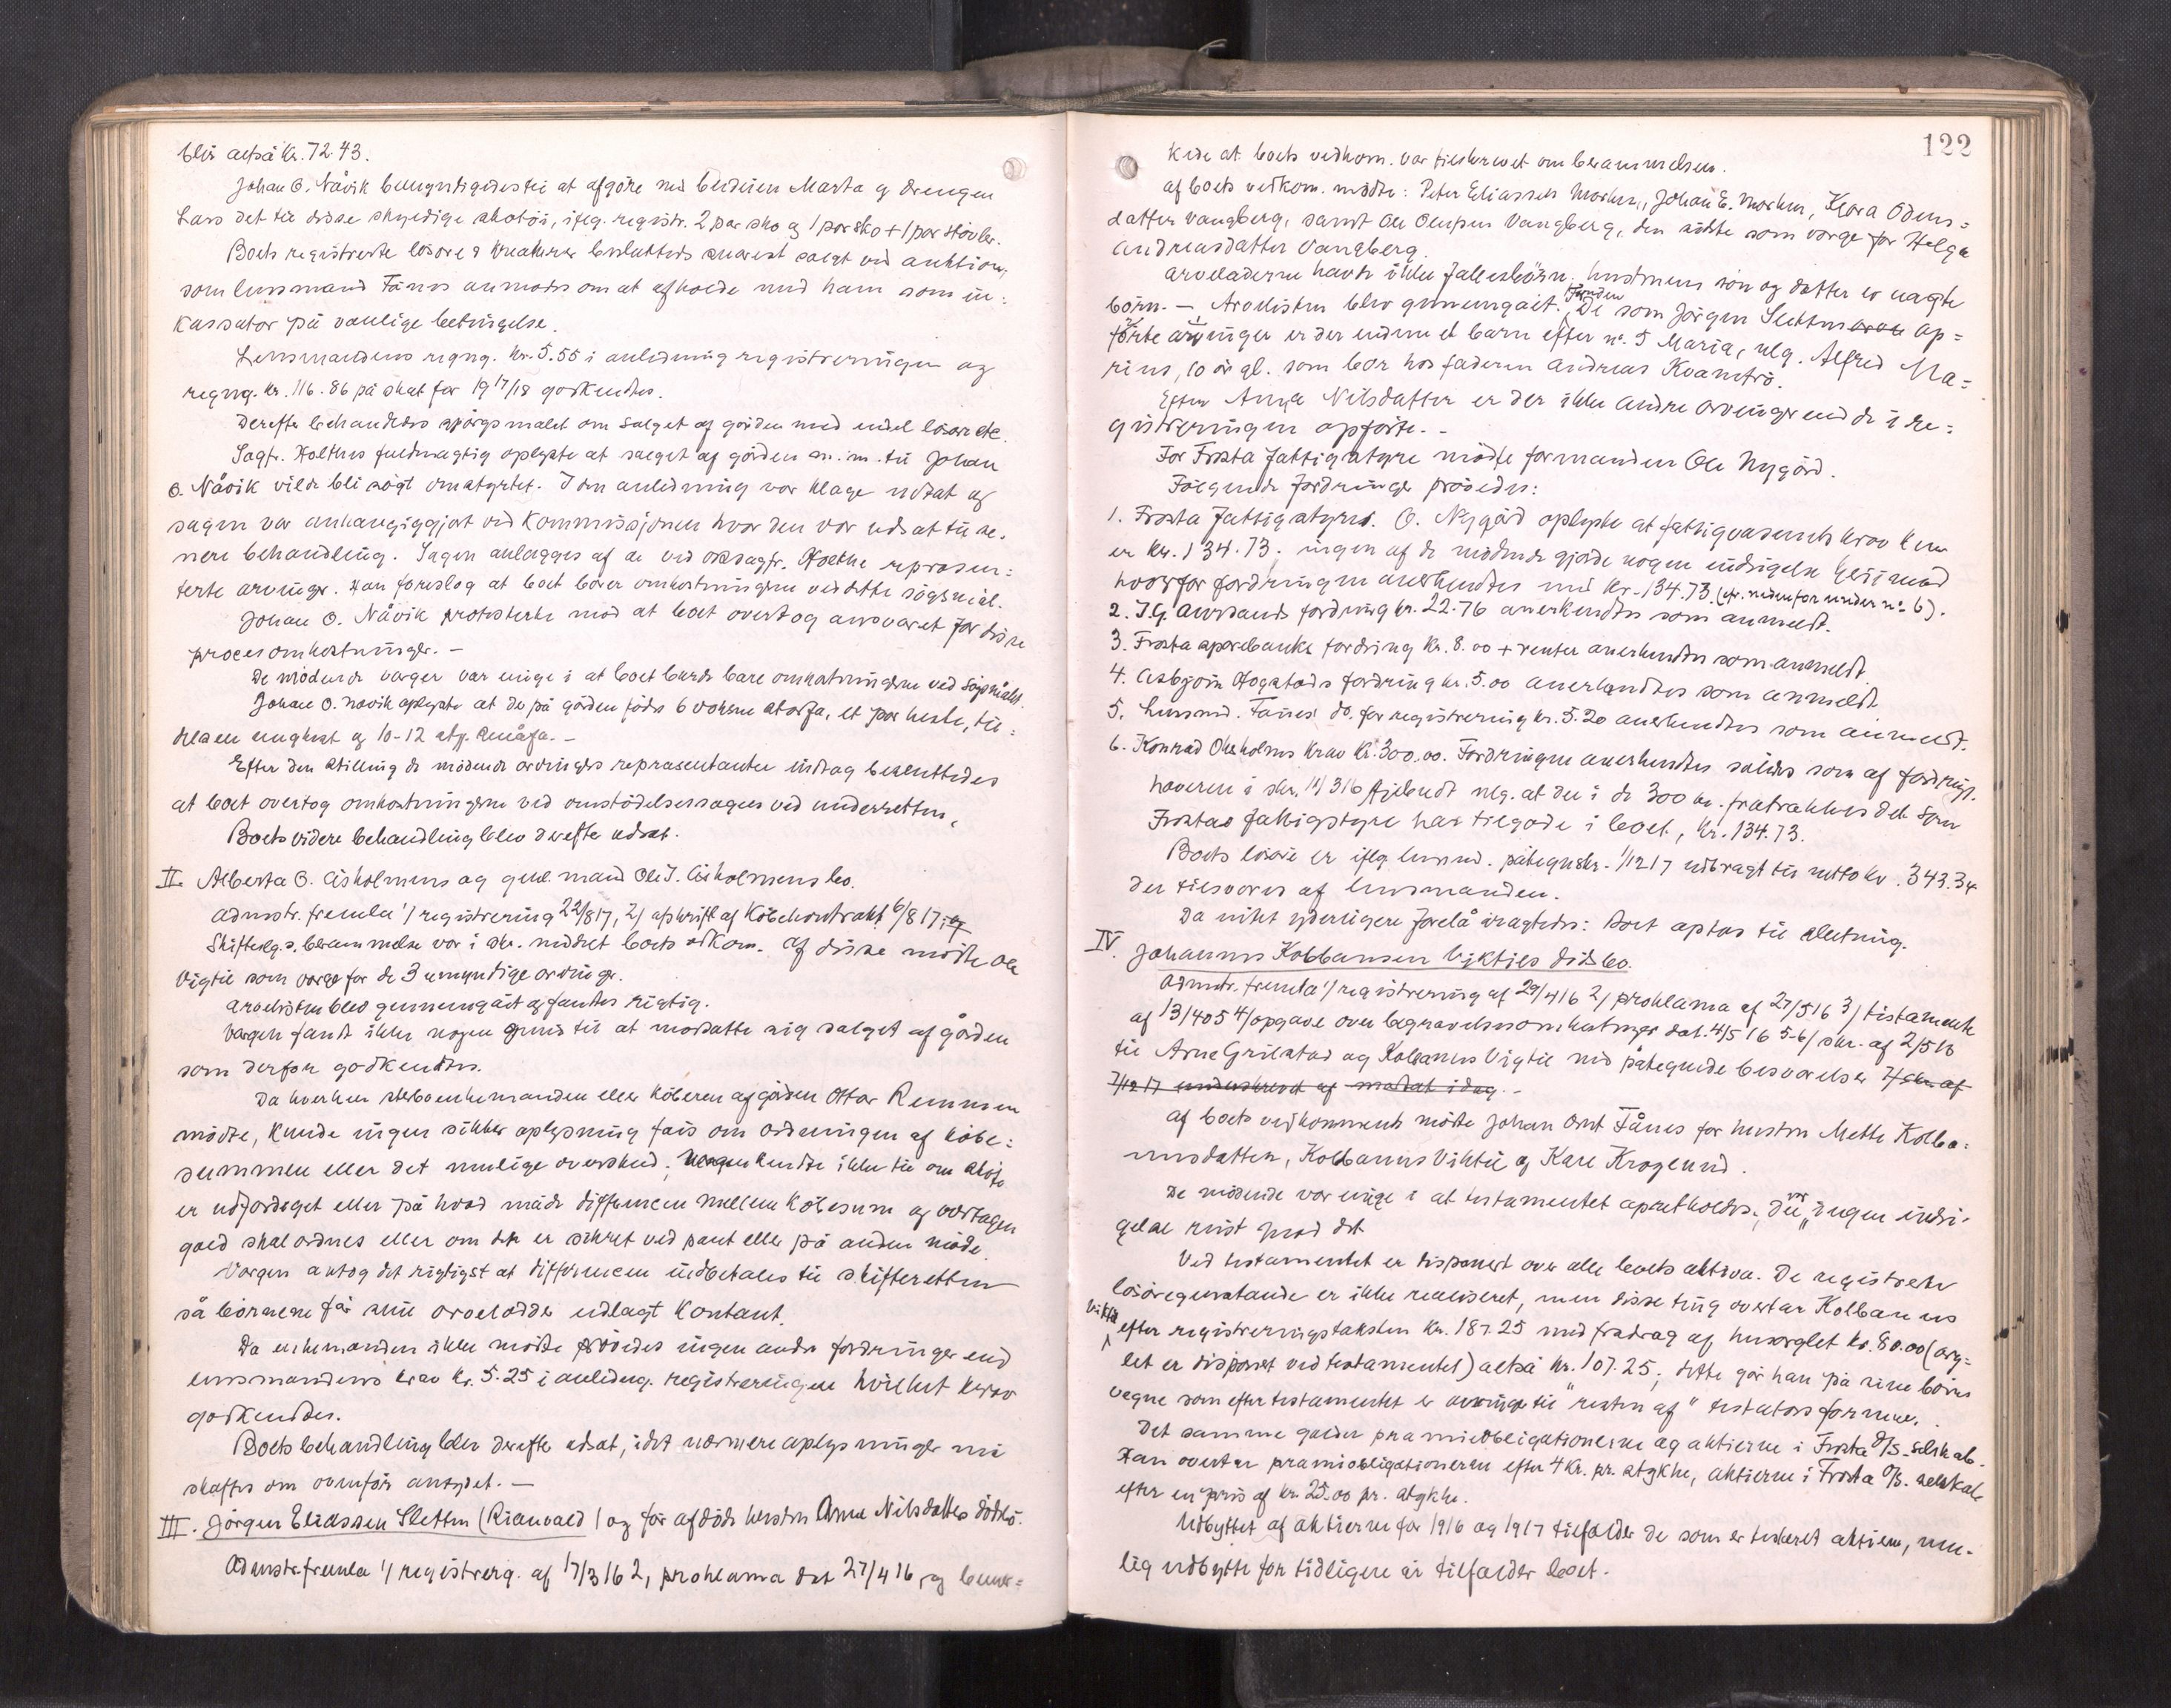 blir altså kr. 72.43.
Johan O. Nåvik bemyndigedes til at afgöre med berdien Marta og drengen
Lars det til disse skyldige skotöi, iflg. registr. 2 par sko og 1 par sko + 1 par stövler.
Boets registrerte lösöre & kreaturer besluttedes snarest solgt ved auktion,
som lensmand Fånes anmodes om at afholde med ham som in-
kassator på vanlige betingelse.
Lensmandens regng. kr. 5.55 i anledning registreringen og
regng. kr. 116.86 på skat for 1917/18 godkendtes.
Derefter behandledes spörgsmalet om salget af gården med endel lösöre etc.
Sagf. Holthes fuldmægtig oplyste at salget af gården m. m. til Johan
O. Nåvik vilde bli sögt omstyrtet. I den anledning var klage uttat og
sagen var anhængiggjort ved Kommissjonen hvor den var udsat til se-
nere behandling. Sagen anlægges af de ved o.r.sagfr. Holthe represen-
terte arvinger. Han foreslog at boet bærer omkostningerne ved dette sögsmål.
Johan O. Nåvik protesterte mod at boet overtog ansvaret for disse
procesomkostninger. -
De mödende verger var enige i at boet burde bære omkostningerne ved sögsmålet.
Johan O. Nåvik oplyste at der på gården födes 6 voksne storfæ, et par heste, til-
dels en unghest og 10-12 stkr. småfæ. -
Efter den stilling de mödende arvingers representanter indtog besluttedes
at boet overtog omkostningerne ved omstödelsessagen ved underretten.
Boets videre behandling blev derefter udsat.
II. Alberta O. Åsholmens og gjenl. mand Ole J. Åsholmens bo.
Admstr. fremla 1/ registrering 22/8 17, 2/ afskrift af Köbekontrakt 6/8 17, og
Skiftesg.s berammelse var i skr. meddelt boets vedkom. Af disse mödte Ole
Vigtil som verge for de 3 umyndige arvinger.
Arvelisten blev gjennemgået og fantes rigtig.
Vergen fandt ikke nogen grund til at modsætte sig salget af gården
som derfor godkendtes.
Da hverken sterboenkemanden eller köberen af gården Ottar Remmen
mödte, kunde ingen sikker oplysning fåes om ordningen af köbe-
summen eller det mulige overskud; Vergen kendte ikke til om skjöte
er udfærdiget eller på hvad måde differencen mellem köbesum og overtagen
gæld skal ordnes eller om den er sikret ved pant eller på anden måde.
Vergen antog det rigtigst at differencen indbetales til skifteretten
så börnene får sine arvelodder udlagt kontant.
Da enkemanden ikke mödte prövedes ingen andre fordringer end
lensmandens krav kr. 5.25 i anledng. registreringen hvilket krav
godkendtes.
Boets behandling blev derefter udsat, idet nærmere oplysninger må
skaffes om ovenfor antydet. -
III. Jörgen Eliassen Sletten (Rianvald) og för afdöde hustru Anne Nilsdatters dödsbo.
Admstr. fremla 1/ registrerg. af 17/3 16 2, proklama dat 27/4 16, og bemær-
122
kede at boets vedkom. var tilskrevet om berammelsen.
Af boets vedkom. mödte: Peter Eliassen Morken, Johan E. Morken, Klara Odens-
datter Vangberg, samt Ole Olufsen Vangberg, den sidste som verge for Helga
Andreasdatter Vangberg.
Arveladerne havde ikke fællesbörn. Hustruens sön og datter er uægte
börn. - Arvelisten blev gjennemgået. Foruden De som Jörgen Slettens op-
förte arvinger er der endnu et barn efter no. 5 Maria, nlg. Alfred Ma-
rius, 10 år gl. som bor hos faderen Andreas Kvamtrö.
Efter Anne Nilsdatter er der ikke andre arvinger end de i re-
gistreringen opförte. -
For Frosta fattigstyre mödte formanden Ole Nygård.
Fölgende fordringer prövedes:
1. Frosta fattigstyres. O. Nygård oplyste at fattigvæsenets krav kun
er kr. 134.73. ingen af de mödende gjorde nogen indsigelse herimod
hvorfor fordringen anerkendtes med kr. 134.73. (cfr. nedenfor under no. 6).
2. J.G. Auvsands fordring kr. 22.76 anerkendtes som anmeldt.
3. Frosta sparebanks fordring kr. 8.00 + renter anerkendtes som anmeldt.
4. Asbjörn Hogstads fordring kr. 5.00 anerkendtes som anmeldt.
5. Lensmd. Fånes' do. for registrering kr. 5.20 anerkendtes som anmeldt.
6. Konrad Okeholms krav kr. 300.00. Fordringen anerkendtes således som af fordrings-
haveren i skr. 11/3 16 tilbudt nlg. at der i de 300 kr. fratrækkes det som
Frostas fattigstyre har tilgode i boet, kr. 134.73.
Boets lösöre er iflg lensmd. påtegnskr. 1/12 17 udbragt til netto kr. 343.34
der tilsvares af lensmanden.
Da intet yderligere forelå vragtedes: Boet optas til slutning.
IV. Johannes Kolbansen Viktils dödsbo.
Admstr. fremla 1/ registrering af 29/4 16 2/ proklama af 27/5 16 3/ testamente
af 13/4 05 4/ opgave over begravelsesomkostninger dat. 4/5 16 5-6/ skr. af 2/5 16
til Arne Grilstad og Kolbanus Vigtil med påtegnede besvarelser 7/ skr. af
7/12 17 underskrevet af modtat idag. -
Af boets vedkommende mödte Johan Arnt Fånes for hustru Mette Kolba-
nusdatter, Kolbanus Viktil og Karl Kroglund.
De mödende var enige i at testamentet opretholdes, der var ingen indsi-
gelse reist mod det.
Ved testamentet er disponert over alle boets aktiva. De registrerte
lösöregenstande er ikke realiseret, men disse ting overtar Kolbanus
Viktil efter registreringstaksten kr. 187.25 med fradrag af husorglet kr. 80.00 (org-
let er disponert ved testamentet) altså kr. 107.25; dette gör han på sine börns
vegne som efter testamentet er arvinger til "resten af" testators formue.
Det samme gælder præmieobligationerne og aktierne i Frosta D/S.-selskab.
Han overtar præmieobligationerne efter 4 kr. pr. stykke, aktierne i Frosta D/S. selskab
efter en pris af kr. 25.00 pr. stykke.
Udbyttet af aktierne for 1916 og 1917 tilfalder de som er testeret aktierne, mu-
lig udbytte for tidligere år tilfalder boet.